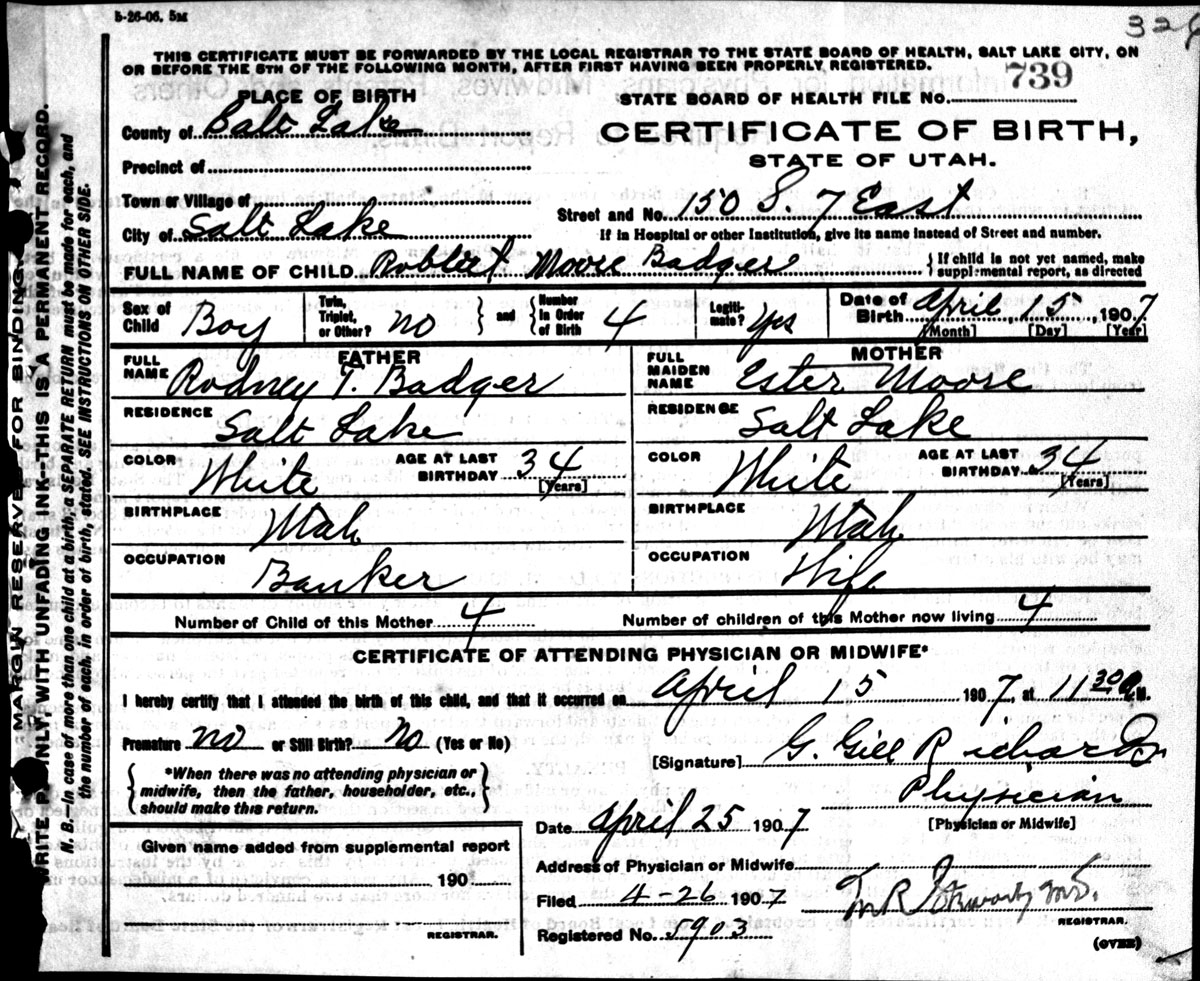 5-26-06. 5M
326
THIS CERTIFICATE MUST BE FORWARDED BY THE LOCAL REGISTRAR TO THE STATE BOARD OF HEALTH, SALT LAKE CITY, ON
OR BEFORE THE 5TH OF THE FOLLOWING MONTH, AFTER FIRST HAVING BEEN PROPERLY REGISTERED.
PLACE OF BIRTH
STATE BOARD OF HEALTH FILE NO. 739
County of Salt Lake
CERTIFICATE OF BIRTH,
STATE OF UTAH.
Precinct of
Town or Village of
Street and No. 150 S. 7 East
City of Salt Lake
If in Hospital or other Institution, give its name instead of Street and number.
FULL NAME OF CHILD Robert Moore Badger
If child is not yet named, make
supplemental report, as directed
Sex of Child Boy
Twin, Triplet, or Other? no
and Number in Order of Birth 4
Legitimate? Yes
Date of Birth April 15, 1907
[Month] [Day] [Year]
FATHER
MOTHER
FULL NAME Rodney T. Badger
FULL MAIDEN NAME Ester Moore
RESIDENCE Salt Lake
RESIDENCE Salt Lake
COLOR White AGE AT LAST BIRTHDAY 34 [Years]
COLOR White AGE AT LAST BIRTHDAY 34 [Years]
BIRTHPLACE Utah
BIRTHPLACE Utah
OCCUPATION Banker
OCCUPATION Wife
Number of Child of this Mother 4
Number of children of this Mother now living 4
CERTIFICATE OF ATTENDING PHYSICIAN OR MIDWIFE*
I hereby certify that I attended the birth of this child, and that it occurred on April 15 1907, at 11 30 A.M.
Premature no or Still Birth? No (Yes or No)
[Signature] G. Gill Richardson
*When there was no attending physician or
midwife, then the father, householder, etc.,
should make this return.
Physician
[Physician or Midwife]
Date April 25 1907
Given name added from supplemental report
190
REGISTRAR.
Address of Physician or Midwife
Filed 4-26 1907
M.D.
REGISTRAR.
Registered No. 5903
(OVER)
MARGIN RESERVED FOR BINDING
WRITE PLAINLY, WITH UNFADING INK-THIS IS A PERMANENT RECORD.
N. B.—In case of more than one child at a birth, a SEPARATE RETURN must be made for each, and
the number of each, in order of birth, stated. SEE INSTRUCTIONS ON OTHER SIDE.